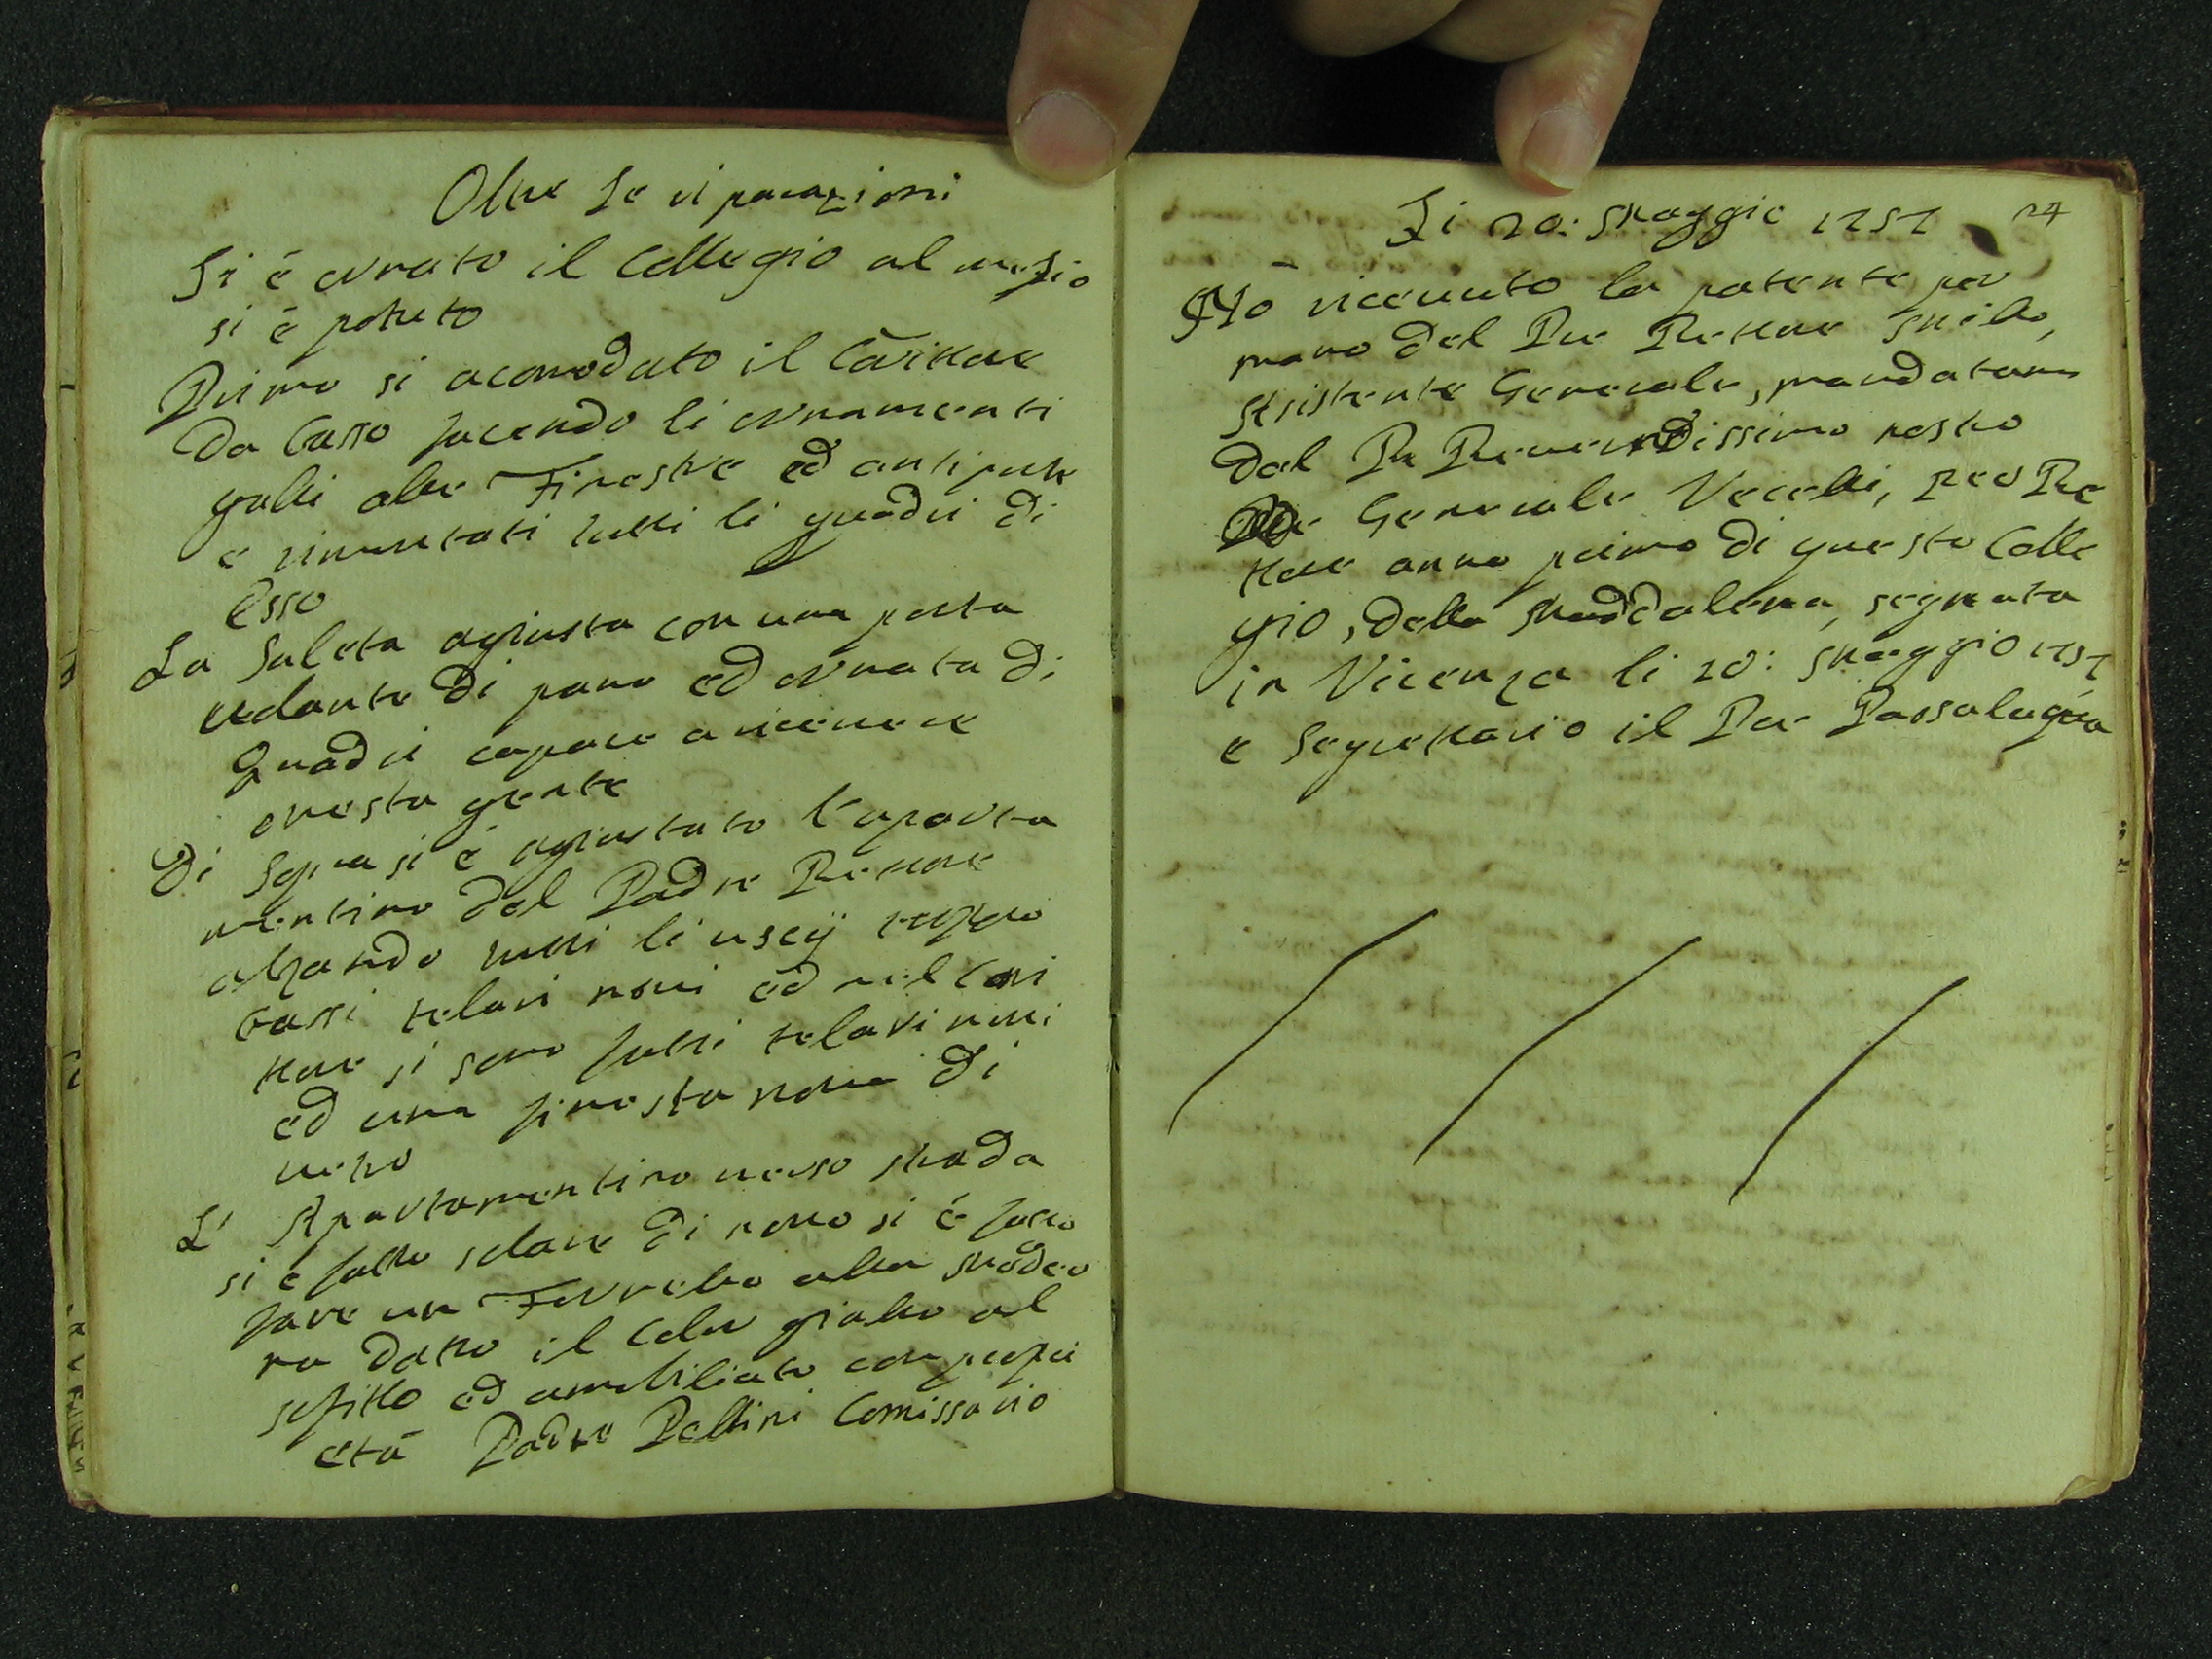 Oltre le riparazioni
Si è ornato il Collegio al meglio
si è potuto
Primo si acomodato il Cāritore
Da basso facendo li ornamenti
gialli alle Finestre ed antiporte
e rimontati tutti li quadri di
Esso
La Saleta agiusta con una porta
volante di pano ed ornata di
Quadri capace a riceuere
onesta gente
Di Sopra si è agiustato l'aparta
mentino del Padre Rettore
alzando tutti li uscij
bassi telari noui ed nel Cari
tore si sono fatti telari noui
ed una finestra noua di
uetro
L' Apartamentino uerso strada
si è fatto solare di nouo si è fatto
fare un Fornello alla Moder
na datto il Color giallo al
sofitto ed amobiliato con propri
età Padre Pellini Comissario
Li 20: Maggio 1757 24
Hō riceuuto la patente per
mano del Pre Rettore
Asistente Generale, mandatami
Dal Pre Reuerendissimo nostro
Pre Generale Vecelli, per Re
ttore anno primo di questo Colle
gio, della Maddalena, segnata
in Vicenza li 10: Maggio 1757
e Segrettario il Pre Passalaqua